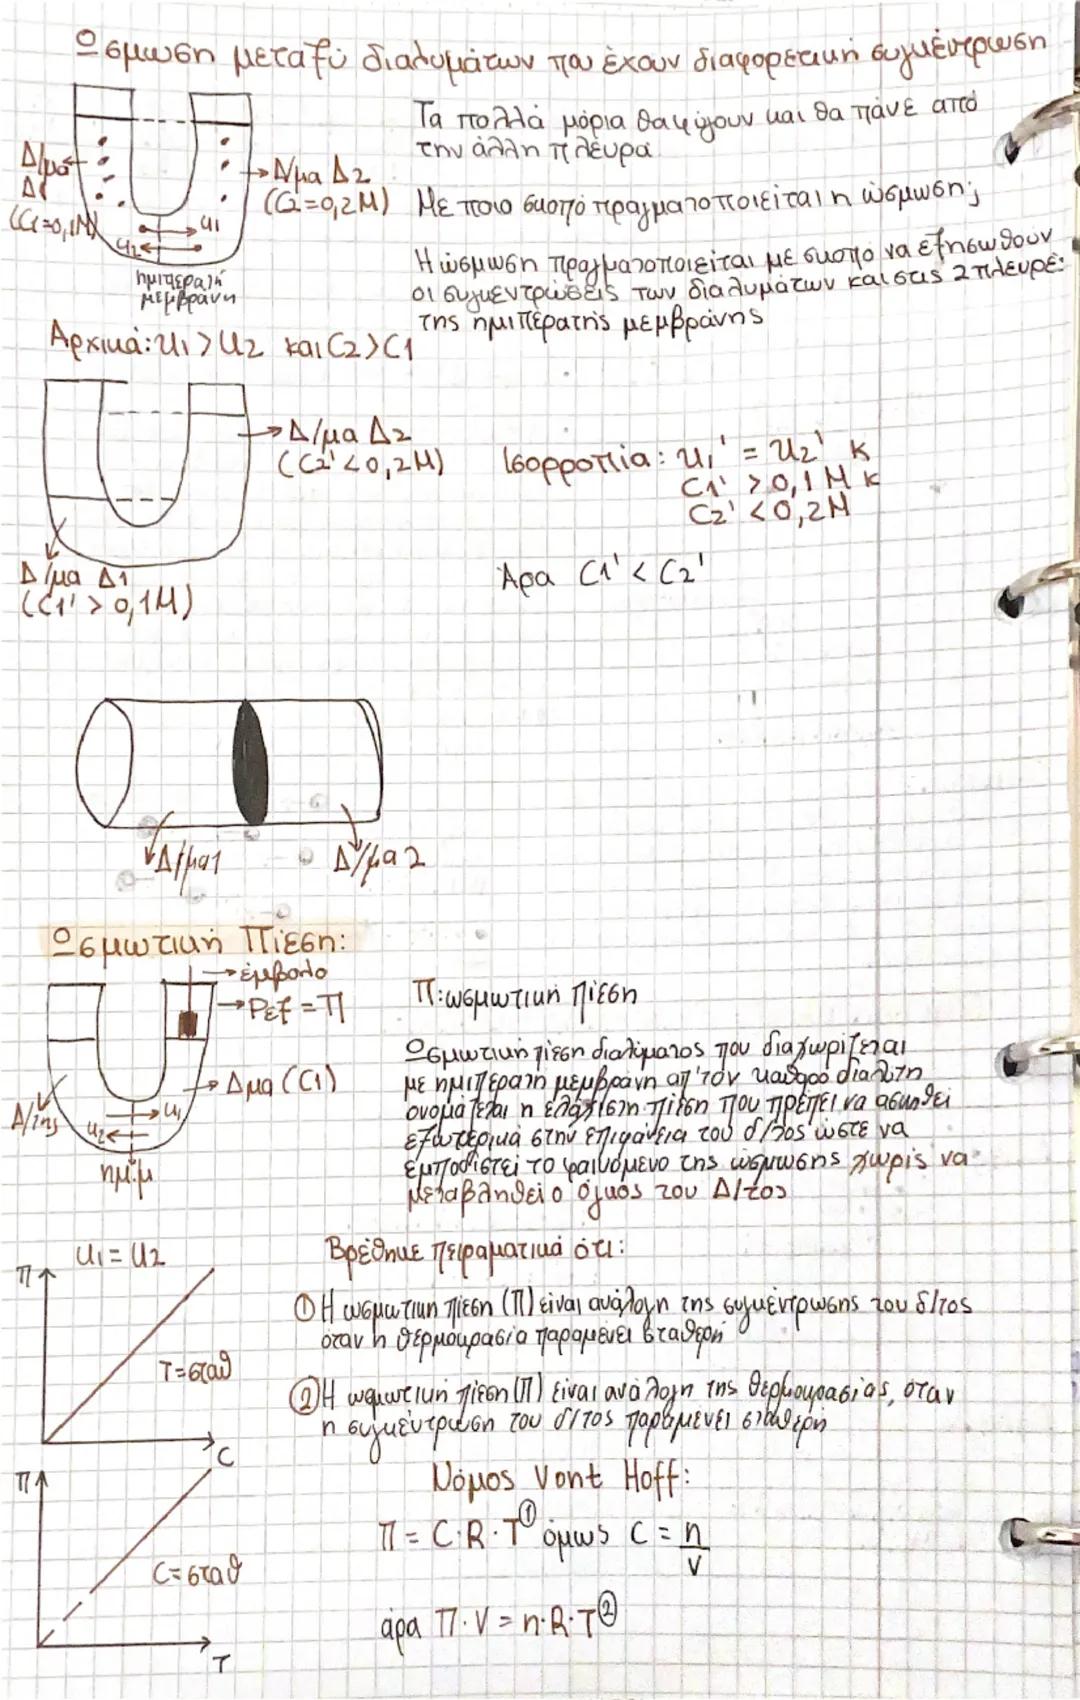 Ώσμωση μεταξύ διαλυμάτων που έχουν διαφορετική συγκέντρωση
Τα πολλά μόρια θα φύγουν και θα πάνε από
την άλλη πλευρά
Δ/μα
Δ1
(C1=0,1M)
Δ/μα Δ2
(C2=0,2M)
u1
u2
ημιπερατή
μεμβράνη
Με ποιο σκοπό πραγματοποιείται η ώσμωση;
Η ώσμωση πραγματοποιείται με σκοπό να εξησωθούν
οι συγκεντρώσεις των διαλυμάτων και στις 2 πλευρές
της ημιπερατής μεμβράνης
Αρχικά: u1 > u2 και C2 > C1
Δ/μα Δ2
(C2' < 0,2M)
Δ/μα Δ1
(C1' > 0,1M)
Ισορροπία: u1' = u2' κ
C1' > 0,1 M κ
C2' < 0,2M
Άρα C1' < C2'
Δ/μα1
Δ/μα 2
Ώσμωτική Πίεση:
έμβολο
Pεξ = Π
Δμα (C1)
Δ/της
u1
u2
ημ.μ
u1 = u2
Π: ωσμωτική πίεση
Ωσμωτική πίεση διαλύματος που διαχωρίζεται
με ημιπερατή μεμβράνη απ' τον καθαρό διαλύτη
ονομάζεται η ελάχιστη πίεση που πρέπει να ασκηθεί
εξωτερικά στην επιφάνεια του δ/τος ώστε να
εμποδιστεί το φαινόμενο της ώσμωσης χωρίς να
μεταβληθεί ο όγκος του Δ/τος
Βρέθηκε πειραματικά ότι:
① Η ωσμωτική πίεση (Π) είναι ανάλογη της συγκέντρωσης του δ/τος
όταν η θερμοκρασία παραμένει σταθερή
② Η ωσμωτική πίεση (Π) είναι ανάλογη της θερμοκρασίας, όταν
η συγκέντρωση του δ/τος παραμένει σταθερή
Π
T=σταθ
C
Π
C=σταθ
T
Νόμος Vant Hoff:
Π = C·R·T ① όμως C = n
V
άρα Π·V = n·R·T ②